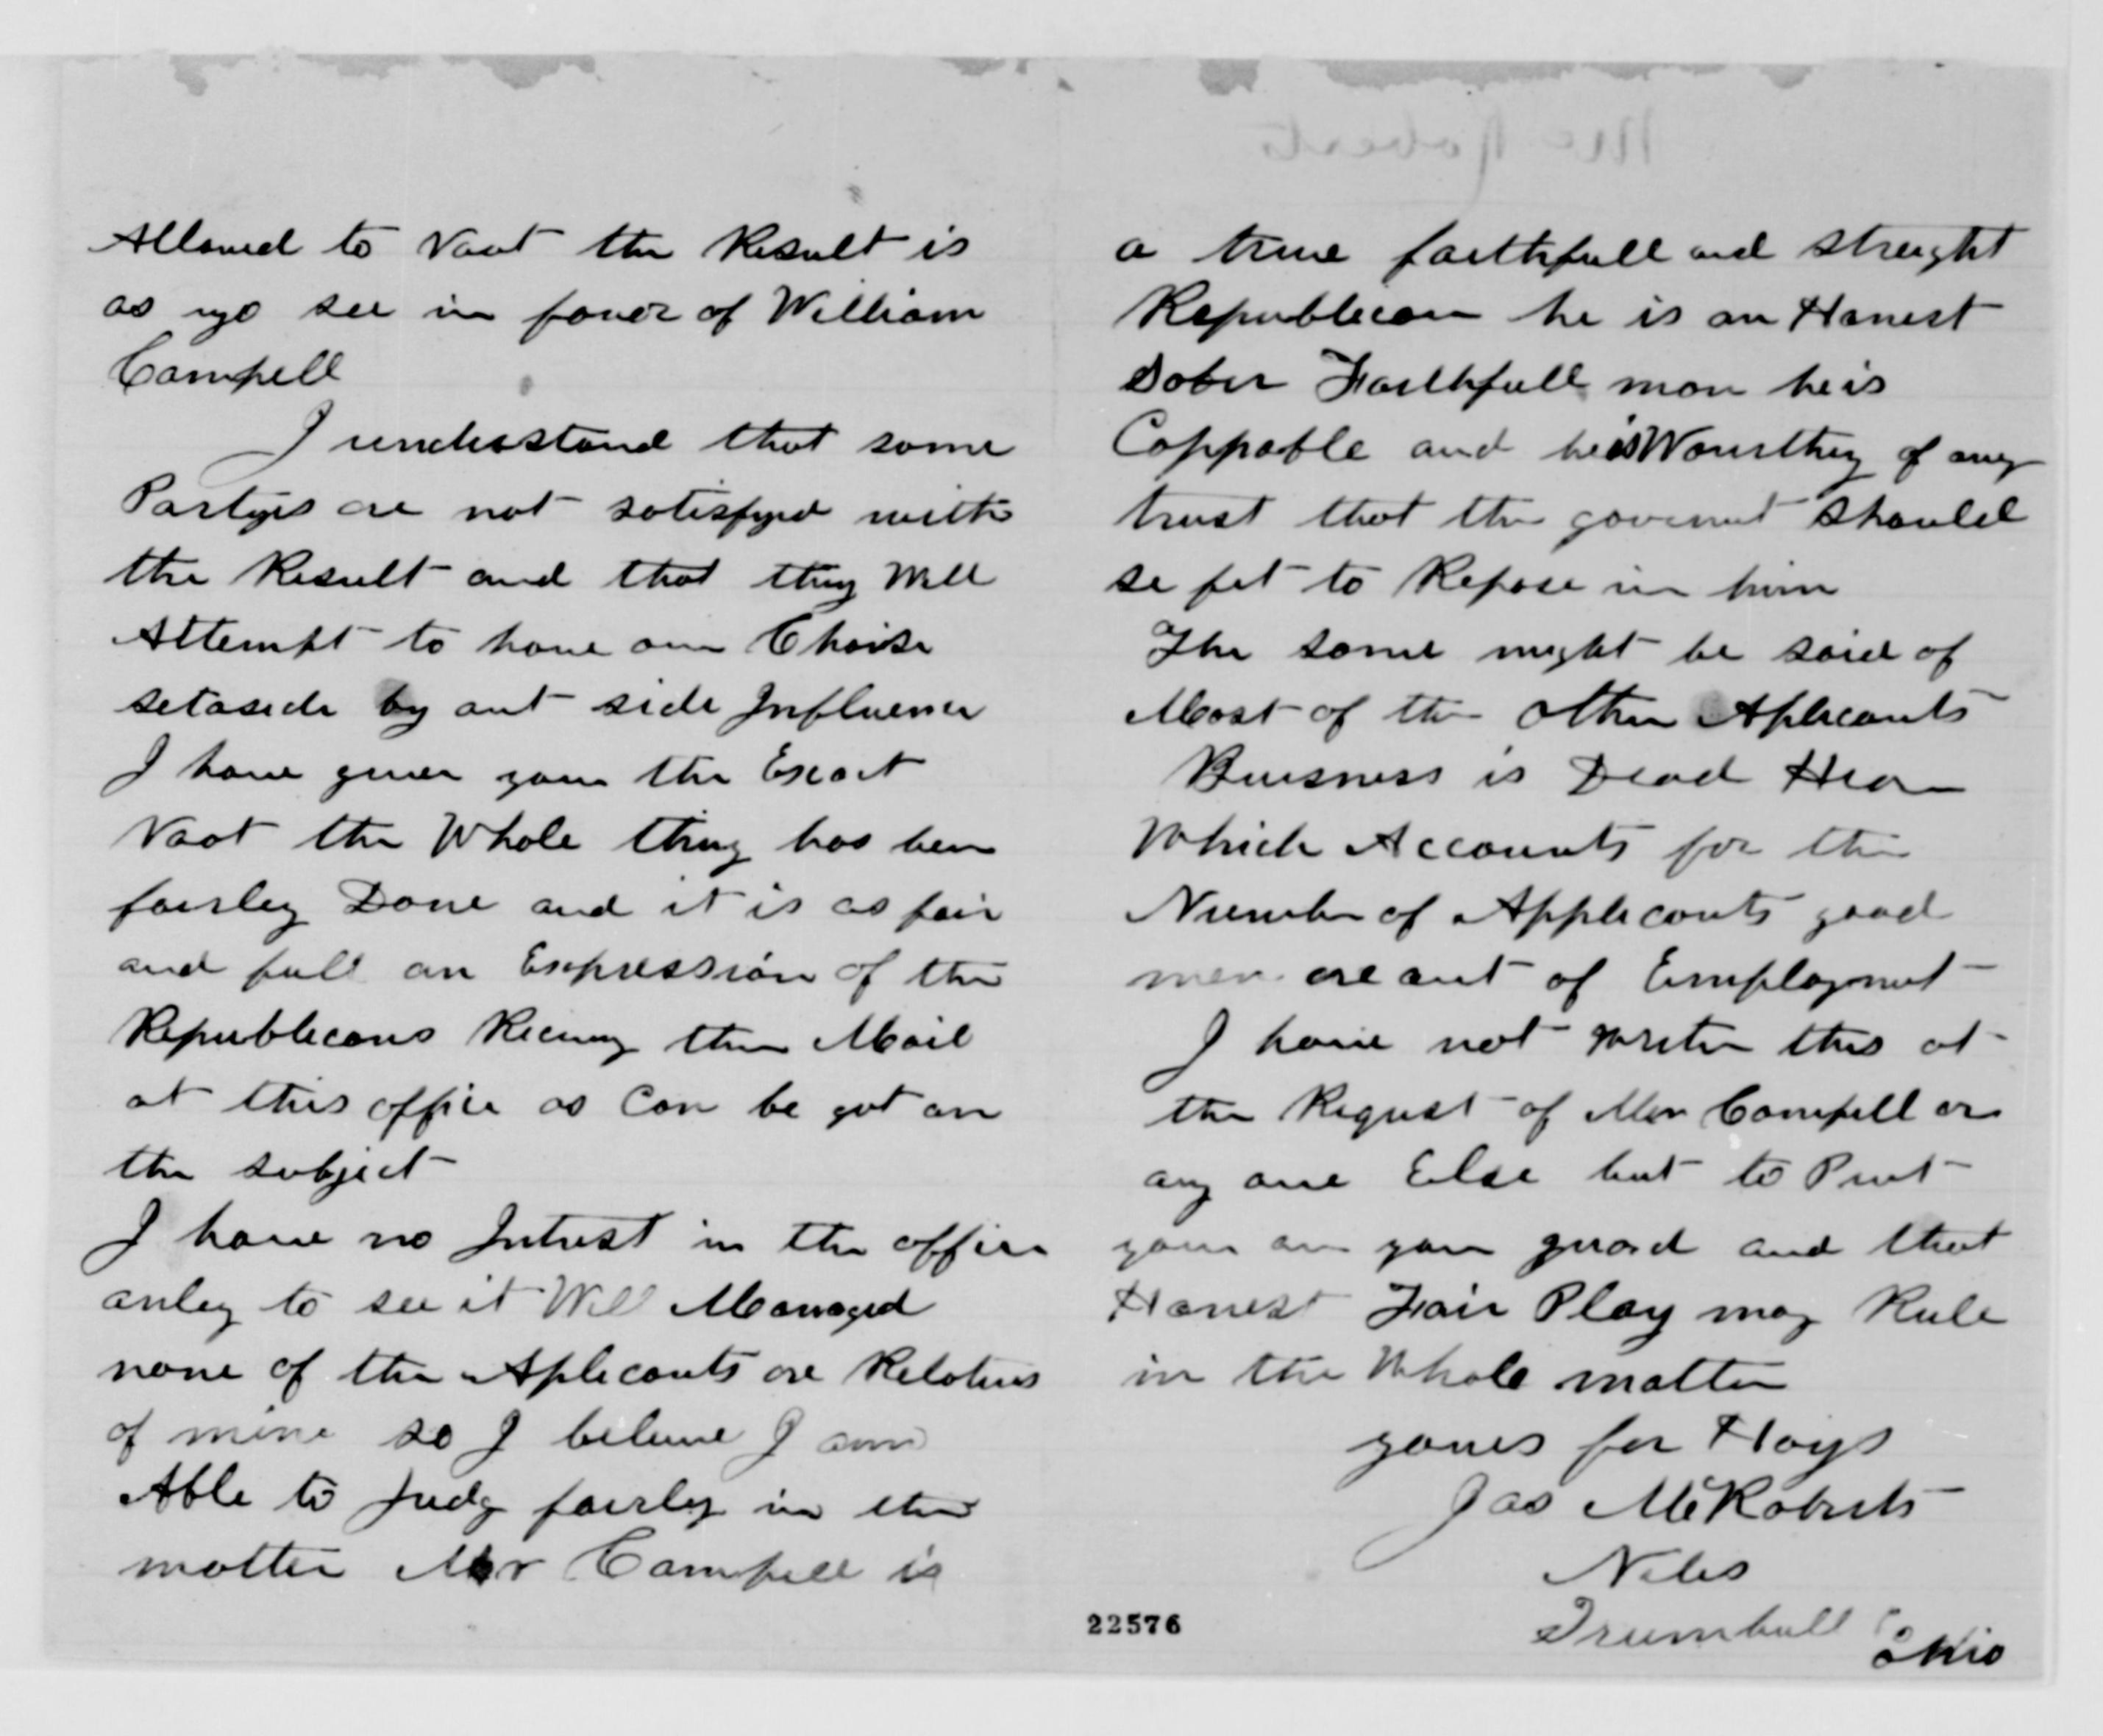 Allowed to Voot the Result is
as yo see in favor of William
Campell
I understand that some
Partys are not satisfyed with
the Result and that they Will
Attempt to have our Choise
setaside by out side Influence
I have given you the Exact
Voot the Whole thing has ben
fairley Done and it is as fair
and full an Expression of the
Republicans Receivng ther Mail
at this office as Can be got on
the subject
I have no Intrest in the office
onley to see it Well Managed
none of the Aplicants are Relatives
of mine so I beleive I am
Able to Judg fairley in the
matter Mr Campell is
Mc Roberts
a true faithfull and streight
Republican he is an Honest
Sober Faithfull man he is
Coppable and he is Wourthey of any
trust that the goverment should
se fit to Repose in him
The same might be said of
Most of the other Aplicants
Buisness is Dead Hear
Which Accounts for the
Number of Applicants good
men are out of Employment
I have not Writen this at
the Request of Mr Campell or
any one Else but to Put
you on your guard and that
Honest Fair Play may Rule
in the Whole matter
yours for Hays
Jas McRoberts
Niles
Trumbull Co
Ohio
22576